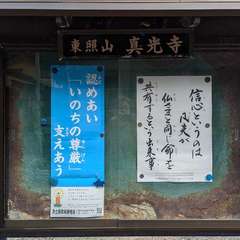 東照山 真光寺
認めあい
「いのちの尊厳」
支えあう
信心というのは
凡夫が
仏さまと同じ命を
共有するという出来事